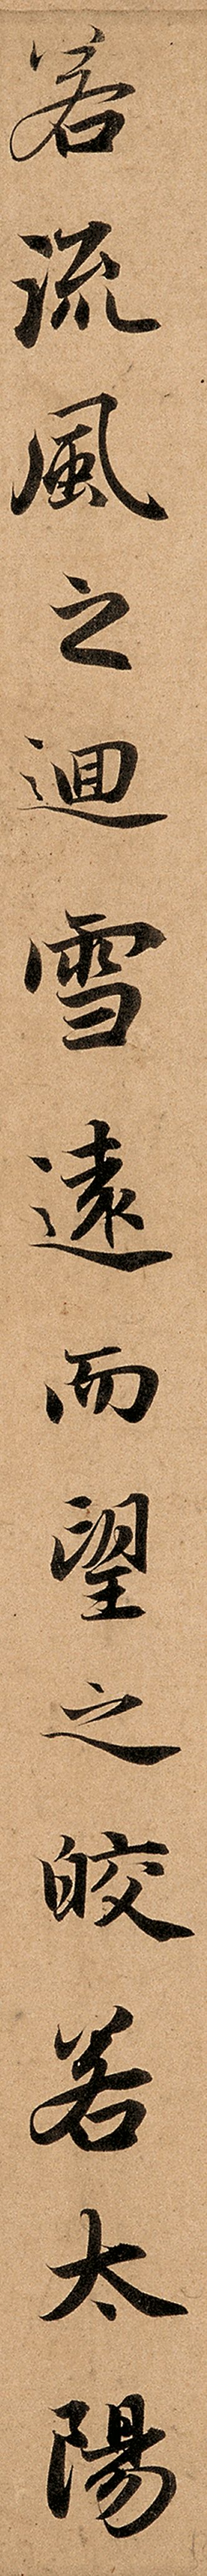 若流風之迴雪遠而望之皎若太陽